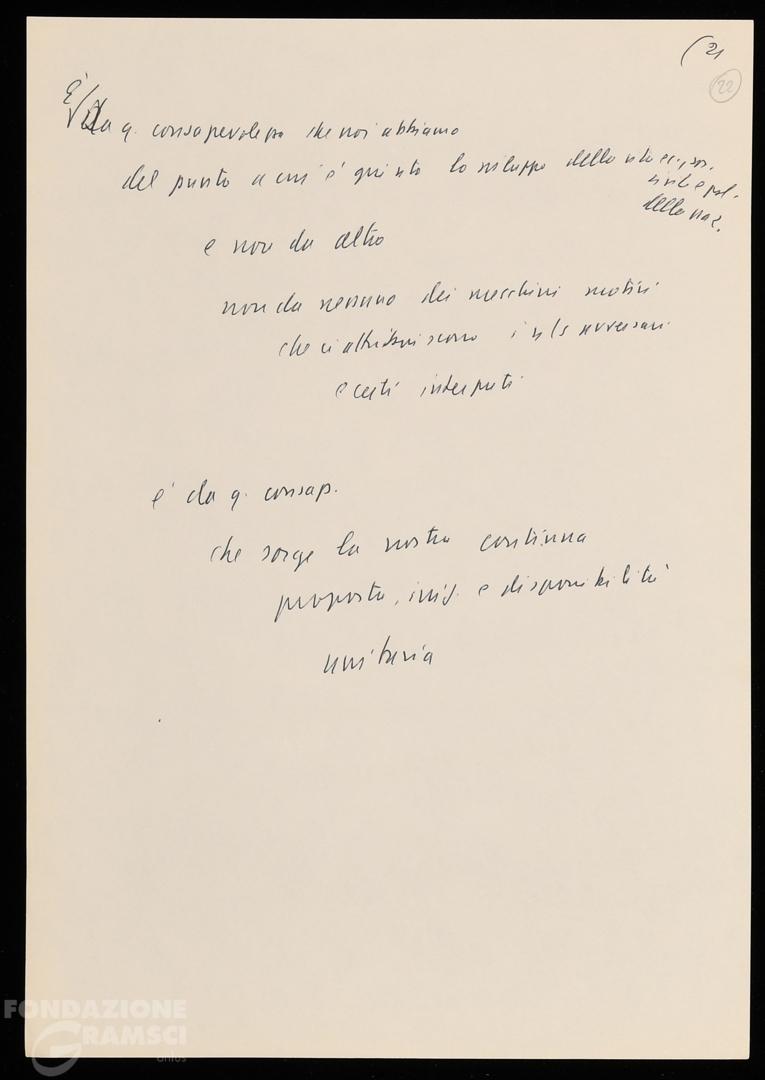 (21
22
È da q. consapevolezza che noi abbiamo
del punto a cui è giunto lo sviluppo della vita ec., soc.
civile e pol.
della naz.
e non da altro
non da nessuno dei meschini motivi
che ci attribuiscono i avversari
e certi interpreti
è da q. consap.
che sorge la nostra continua
proposta, iniz. e disponibilità
unitaria
FONDAZIONE
GRAMSCI
onlus